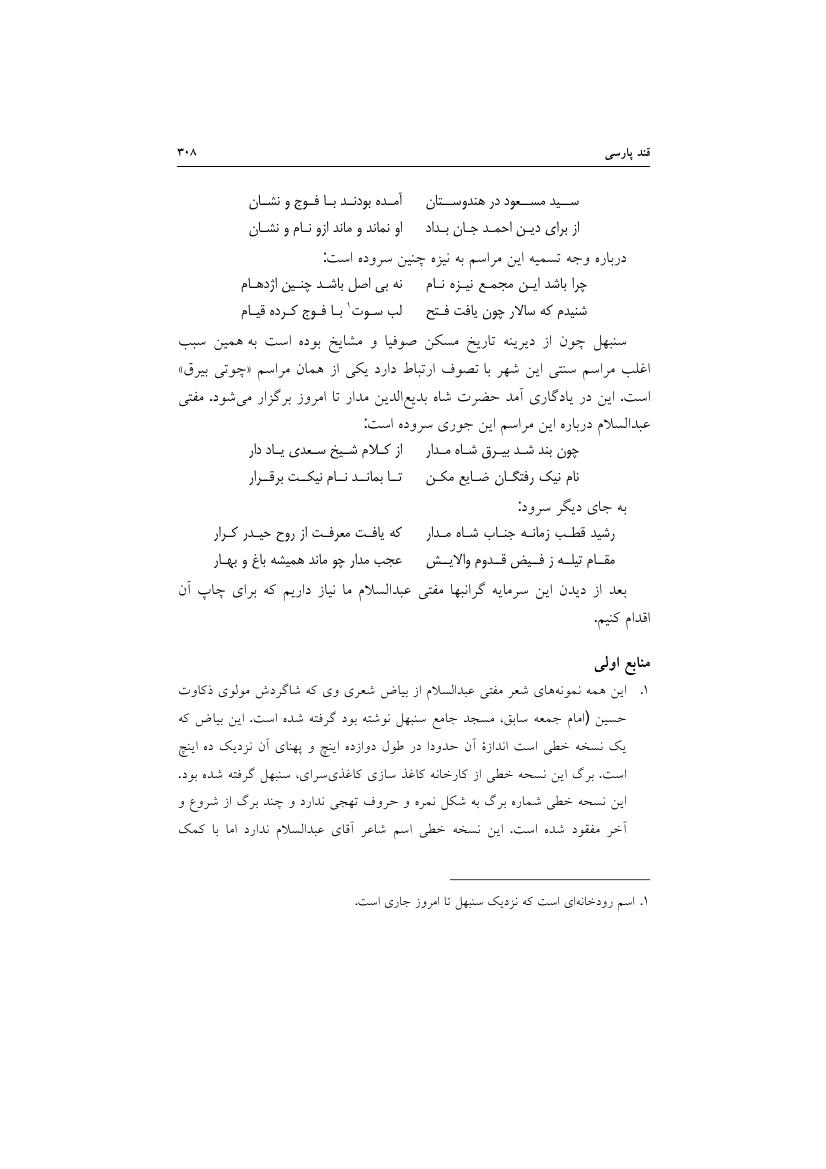 قند پارسی ۳۰۸
سید مسعود در هندوستان آمده بودند با فوج و نشان
از برای دین احمد جان بداد او نماند و ماند ازو نام و نشان
درباره وجه تسمیه این مراسم به نیزه چنین سروده است:
چرا باشد این مجمع نیزه نام نه بی اصل باشد چنین اژدهام
شنیدم که سالار چون یافت فتح لب سوت۱ با فوج کرده قیام
سنبهل چون از دیرینه تاریخ مسکن صوفیا و مشایخ بوده است به همین سبب
اغلب مراسم سنتی این شهر با تصوف ارتباط دارد یکی از همان مراسم «چوتی بیرق»
است. این در یادگاری آمد حضرت شاه بدیع‌الدین مدار تا امروز برگزار می‌شود. مفتی
عبدالسلام درباره این مراسم این جوری سروده است:
چون بند شد بیرق شاه مدار از کلام شیخ سعدی یاد دار
نام نیک رفتگان ضایع مکن تا بماند نام نیکت برقرار
به جای دیگر سرود:
رشید قطب زمانه جناب شاه مدار که یافت معرفت از روح حیدر کرار
مقام تیله ز فیض قدوم والایش عجب مدار چو ماند همیشه باغ و بهار
بعد از دیدن این سرمایه گرانبها مفتی عبدالسلام ما نیاز داریم که برای چاپ آن
اقدام کنیم.
منابع اولی
۱. این همه نمونه‌های شعر مفتی عبدالسلام از بیاض شعری وی که شاگردش مولوی ذکاوت
حسین (امام جمعه سابق، مسجد جامع سنبهل نوشته بود گرفته شده است. این بیاض که
یک نسخه خطی است اندازهٔ آن حدودا در طول دوازده اینچ و پهنای آن نزدیک ده اینچ
است. برگ این نسحه خطی از کارخانه کاغذ سازی کاغذی‌سرای، سنبهل گرفته شده بود.
این نسخه خطی شماره برگ به شکل نمره و حروف تهجی ندارد و چند برگ از شروع و
آخر مفقود شده است. این نسخه خطی اسم شاعر آقای عبدالسلام ندارد اما با کمک
۱. اسم رودخانه‌ای است که نزدیک سنبهل تا امروز جاری است.